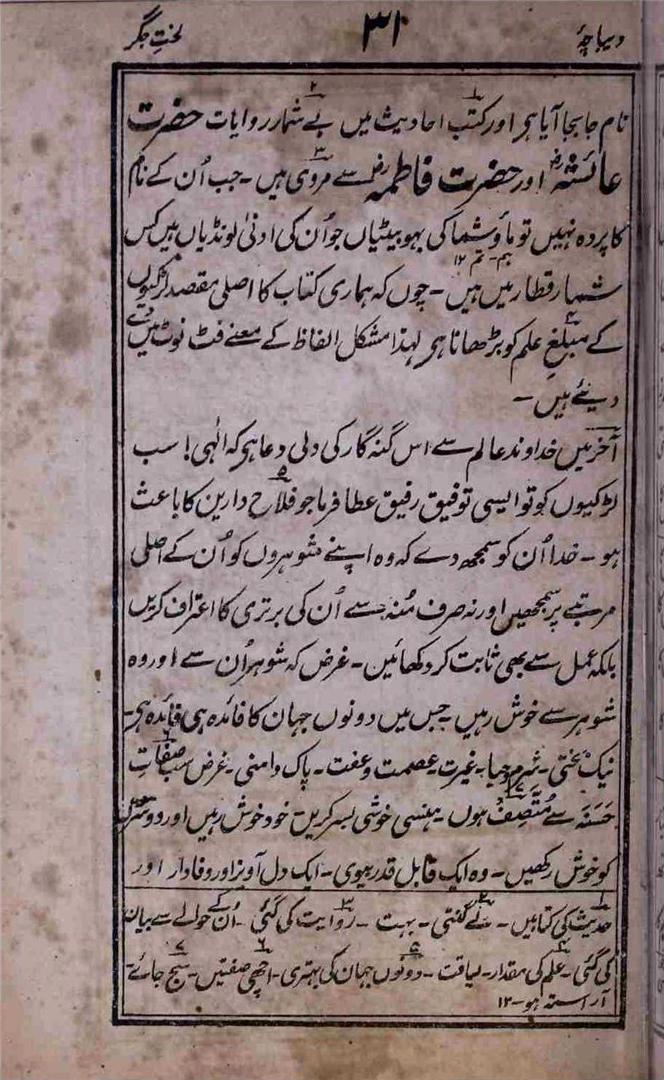 دیباچۂ ۳۱ لختِ جگر
نام جابجا آیا ہر اور کتب احادیث میں بے شمار روایات حضرت
عائشہؓ اور حضرت فاطمہؓ سے مروی ہیں ۔ جب اُن کے نام
کا پردہ نہیں تو ماؤ شما کی بہو بیٹیاں جو اُن کی ادنیٰ لونڈیاں ہیں کس
ہم ۔ تم ۱۲
شمار قطار میں ہیں ۔ چوں کہ ہماری کتاب کا اصلی مقصد لڑکیوں
کے مبلغِ علم کو بڑھانا ہر لہذا مشکل الفاظ کے معنے فٹ نوٹ میں
دیئے ہیں ۔
آخر میں خداوند عالم سے اس گنہ گار کی دلی دعا ہر کہ الٰہی! سب
لڑکیوں کو تو ایسی توفیق رفیق عطا فرما جو فلاح دارین کا باعث
ہو ۔ خدا اُن کو سمجھ دے کہ وہ اپنے شوہروں کو اُن کے اصلی
مرتبے پر سمجھیں اور نہ صرف مُنہ سے اُن کی برتری کا اعتراف کریں
بلکہ عمل سے بھی ثابت کر دکھائیں ۔ غرض کہ شوہر اُن سے اور وہ
شوہر سے خوش رہیں ۔ جس میں دونوں جہان کا فائدہ ہی فائدہ ہر ۔
نیک بختی ۔ شرم و حیا ۔ غیرت ۔ عصمت و عفت ۔ پاک دامنی ۔ غرض سب صفاتِ
حَسَنَہ سے مُتصِف ہوں ۔ ہنسی خوشی بسر کریں ۔ خود خوش رہیں اور دوسروں
کو خوش رکھیں ۔ وہ ایک قابل قدر بیوی ۔ ایک دل آویز اور وفادار اور
۱ حدیث کی کتابیں ۔ ۲ بے گنتی ۔ بہت ۔ ۳ روایت کی گئی ۔ اُن کے حوالے سے بیان
کی گئی ۔ ۴ علم کی مقدار ۔ لیاقت ۔ ۵ دونوں جہان کی بہتری ۔ ۶ اچھی صفتیں ۔ ۷ سج جائے ۔
آراستہ ہو ۔ ۱۲